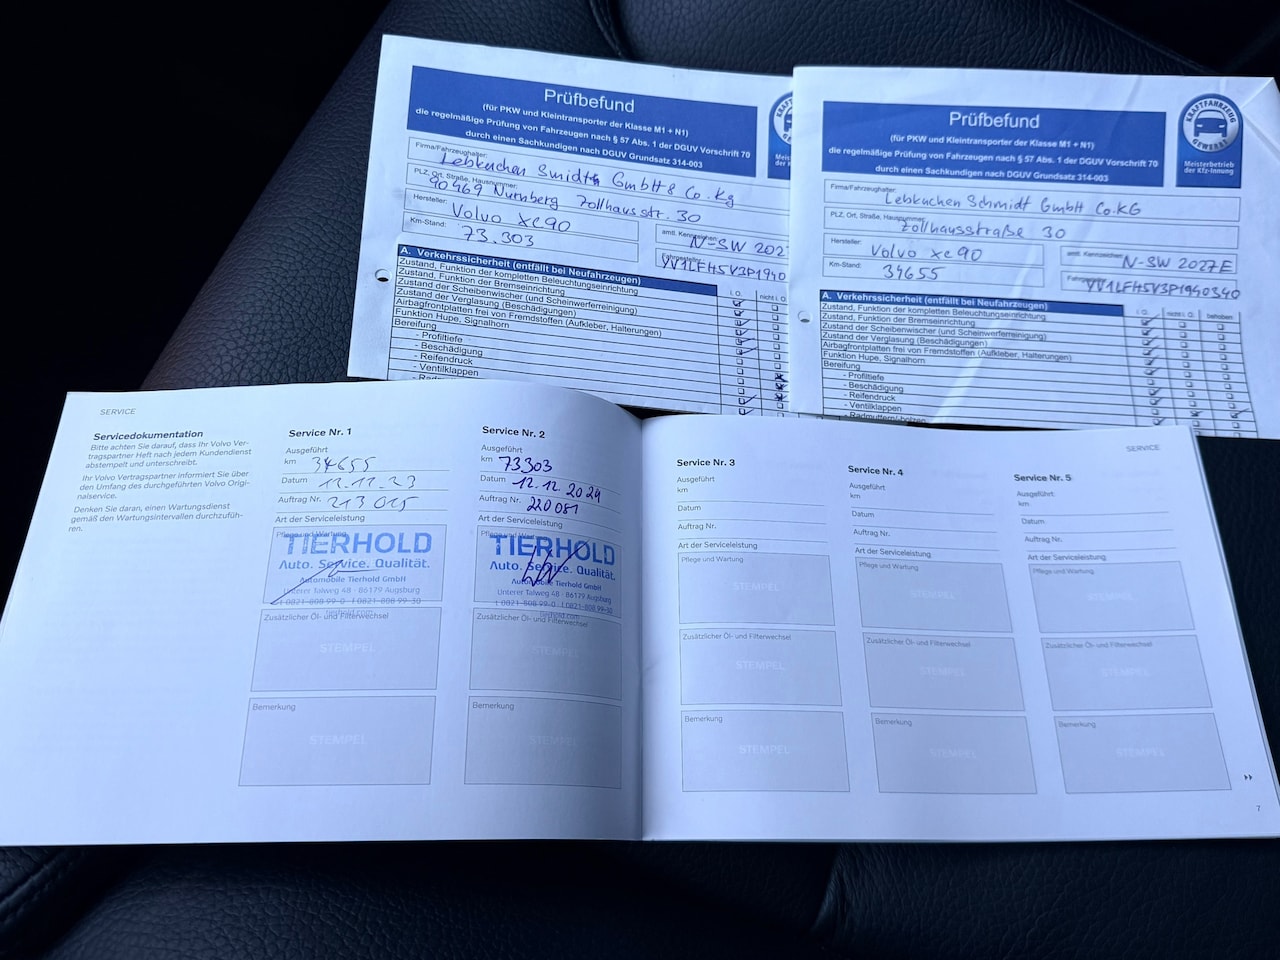 Prüfbefund
(für PKW und Kleintransporter der Klasse M1 + N1)
die regelmäßige Prüfung von Fahrzeugen nach § 57 Abs. 1 der DGUV Vorschrift 70
durch einen Sachkundigen nach DGUV Grundsatz 314-003
Firma/Fahrzeughalter:
Lebkuchen Smidt GmbH & Co. Kg
PLZ, Ort, Straße, Hausnummer:
90469 Nürnberg Zollhausstr. 30
Hersteller:
Volvo xc90
amtl. Kennzeichen:
N-SW 2027
Km-Stand:
73.303
YV1LFH5V3P1940
A. Verkehrssicherheit (entfällt bei Neufahrzeugen)
i. O.
nicht i. O.
Zustand, Funktion der kompletten Beleuchtungseinrichtung
Zustand, Funktion der Bremseinrichtung
Zustand der Scheibenwischer (und Scheinwerferreinigung)
Zustand der Verglasung (Beschädigungen)
Airbagfrontplatten frei von Fremdstoffen (Aufkleber, Halterungen)
Funktion Hupe, Signalhorn
Bereifung
- Profiltiefe
- Beschädigung
- Reifendruck
- Ventilklappen
Prüfbefund
(für PKW und Kleintransporter der Klasse M1 + N1)
die regelmäßige Prüfung von Fahrzeugen nach § 57 Abs. 1 der DGUV Vorschrift 70
durch einen Sachkundigen nach DGUV Grundsatz 314-003
KRAFTFAHRZEUG
GEWERBE
Meisterbetrieb
der Kfz-Innung
Firma/Fahrzeughalter:
Lebkuchen Schmidt GmbH Co.KG
PLZ, Ort, Straße, Hausnummer:
Zollhausstraße 30
Hersteller:
Volvo xc90
amtl. Kennzeichen:
N-SW 2027E
Km-Stand:
34655
YV1LFH5V3P1940340
A. Verkehrssicherheit (entfällt bei Neufahrzeugen)
i. O.
nicht i. O.
behoben
Zustand, Funktion der kompletten Beleuchtungseinrichtung
Zustand, Funktion der Bremseinrichtung
Zustand der Scheibenwischer (und Scheinwerferreinigung)
Zustand der Verglasung (Beschädigungen)
Airbagfrontplatten frei von Fremdstoffen (Aufkleber, Halterungen)
Funktion Hupe, Signalhorn
Bereifung
- Profiltiefe
- Beschädigung
- Reifendruck
- Ventilklappen
- Radmuttern/-bolzen
SERVICE
Servicedokumentation
Bitte achten Sie darauf, dass Ihr Volvo Ver-
tragspartner Heft nach jedem Kundendienst
abstempelt und unterschreibt.
Ihr Volvo Vertragspartner informiert Sie über
den Umfang des durchgeführten Volvo Origi-
nalservice.
Denken Sie daran, einen Wartungsdienst
gemäß den Wartungsintervallen durchzufüh-
ren.
Service Nr. 1
Ausgeführt
km 34655
Datum 12.12.23
Auftrag Nr. 213 015
Art der Serviceleistung
Pflege und Wartung
TIERHOLD
Auto. Service. Qualität.
Automobile Tierhold GmbH
Unterer Talweg 48 · 86179 Augsburg
t 0821-808 99-0 f 0821-808 99-30
tierhold.com
Zusätzlicher Öl- und Filterwechsel
STEMPEL
Bemerkung
STEMPEL
Service Nr. 2
Ausgeführt
km 73303
Datum 12.12.2024
Auftrag Nr. 220081
Art der Serviceleistung
Pflege und Wartung
TIERHOLD
Auto. Service. Qualität.
Automobile Tierhold GmbH
Unterer Talweg 48 · 86179 Augsburg
t 0821-808 99-0 f 0821-808 99-30
tierhold.com
Zusätzlicher Öl- und Filterwechsel
STEMPEL
Bemerkung
STEMPEL
SERVICE
Service Nr. 3
Ausgeführt
km
Datum
Auftrag Nr.
Art der Serviceleistung
Pflege und Wartung
STEMPEL
Zusätzlicher Öl- und Filterwechsel
STEMPEL
Bemerkung
STEMPEL
Service Nr. 4
Ausgeführt
km
Datum
Auftrag Nr.
Art der Serviceleistung
Pflege und Wartung
STEMPEL
Zusätzlicher Öl- und Filterwechsel
STEMPEL
Bemerkung
STEMPEL
Service Nr. 5
Ausgeführt
km
Datum
Auftrag Nr.
Art der Serviceleistung
Pflege und Wartung
STEMPEL
Zusätzlicher Öl- und Filterwechsel
STEMPEL
Bemerkung
STEMPEL
7